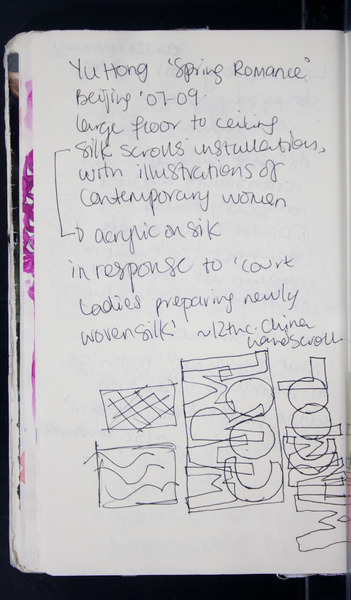 Yu Hong "Spring Romance"
Beijing '07-09.
large floor to ceiling
silk scrolls installations,
with illustrations of
contemporary women
acrylic on silk
in response to 'court
Ladies preparing newly
woven silk' ~12thc. China
handscroll
WARM
COOL